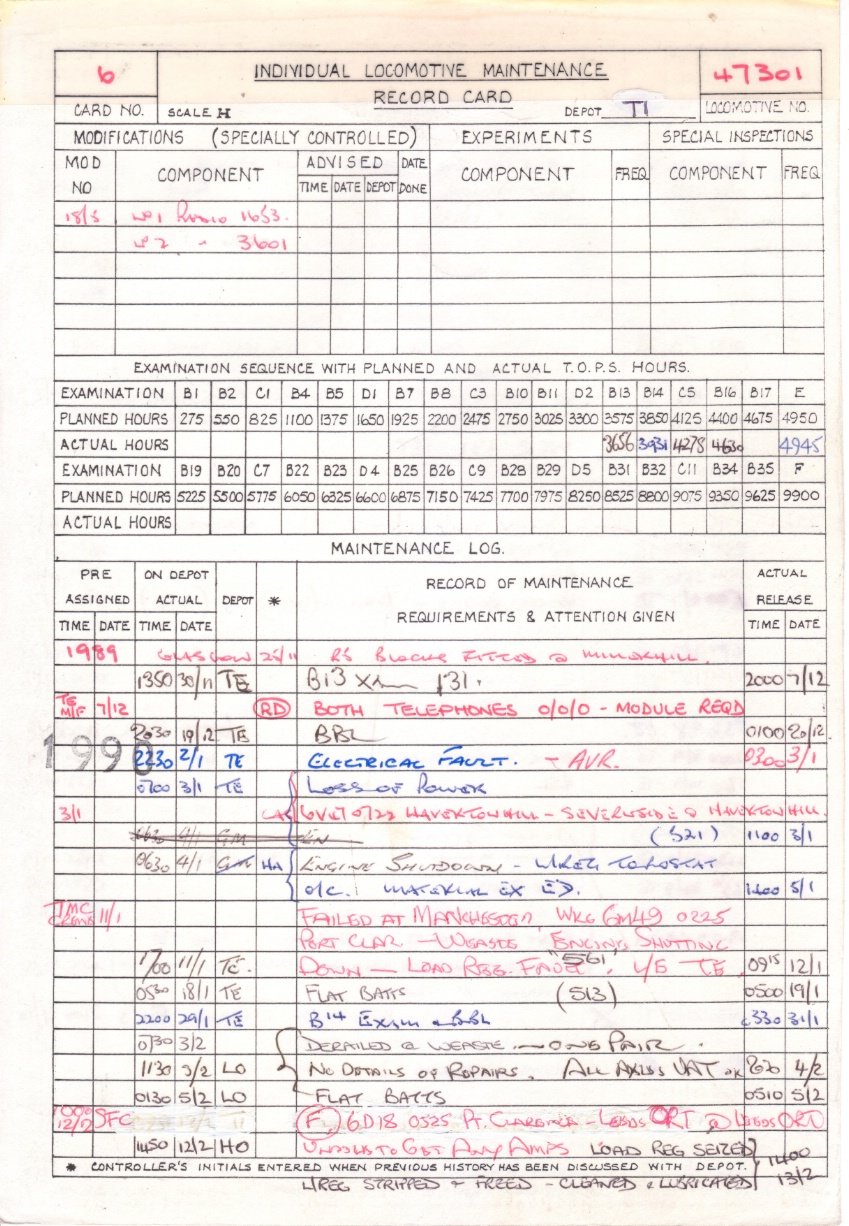 6 INDIVIDUAL LOCOMOTIVE MAINTENANCE 47301
RECORD CARD
CARD NO. SCALE H DEPOT TI LOCOMOTIVE NO.
MODIFICATIONS (SPECIALLY CONTROLLED) EXPERIMENTS SPECIAL INSPECTIONS
MOD NO COMPONENT ADVISED DATE DONE COMPONENT FREQ COMPONENT FREQ
TIME DATE DEPOT
18/5 No1 Radio 1653.
No 2 " 3601
EXAMINATION SEQUENCE WITH PLANNED AND ACTUAL T.O.P.S. HOURS.
EXAMINATION B1 B2 C1 B4 B5 D1 B7 B8 C3 B10 B11 D2 B13 B14 C5 B16 B17 E
PLANNED HOURS 275 550 825 1100 1375 1650 1925 2200 2475 2750 3025 3300 3575 3850 4125 4400 4675 4950
ACTUAL HOURS 3656 3931 4278 4630 4945
EXAMINATION B19 B20 C7 B22 B23 D4 B25 B26 C9 B28 B29 D5 B31 B32 C11 B34 B35 F
PLANNED HOURS 5225 5500 5775 6050 6325 6600 6875 7150 7425 7700 7975 8250 8525 8800 9075 9350 9625 9900
ACTUAL HOURS
MAINTENANCE LOG.
PRE ASSIGNED ON DEPOT ACTUAL DEPOT * RECORD OF MAINTENANCE REQUIREMENTS & ATTENTION GIVEN ACTUAL RELEASE
TIME DATE TIME DATE TIME DATE
1989 GLASGOW 25/11 RS BLOCKS FITTED @ MILLERHILL.
1350 30/11 TE B13 Xam 131. 2000 7/12
TE M/F 7/12 RD BOTH TELEPHONES 0/0/0 - MODULE REQD
2030 19/12 TE BBL 0100 20/12
1990 2230 2/1 TE ELECTRICAL FAULT. - AVR. 0300 3/1
0700 3/1 TE LOSS OF POWER
3/1 0722 HAVERTON HILL - SEVERNSIDE @ HAVERTON HILL.
(521) 1100 3/1
0630 4/1 HA ENGINE SHUTDOWN - WATER TORQSTAT
O/C. MATERIAL EX ED. 1400 5/1
TMC CREWE 11/1 FAILED AT MANCHESTER, WKG 6M49 0225
PORT CLAR - WEASTE "ENGINE SHUTTING
1700 11/1 TE. DOWN - LOAD REG. FAULT "561" L/E TE 0915 12/1
0530 18/1 TE FLAT BATTS (513) 0500 19/1
2200 29/1 TE B14 EXAM & BBL 2330 31/1
0730 3/2 DERAILED @ WEASTE. - ONE PAIR.
1130 3/2 LO NO DETAILS OF REPAIRS. ALL AXLES UAT OK 4/2
0130 5/2 LO FLAT BATTS 0510 5/2
12/2 SFC F 6D18 0325 Pt. CLARENCE - LEEDS
1450 12/2 HO UNABLE TO GET ANY AMPS LOAD REG SEIZED 1400
* CONTROLLER'S INITIALS ENTERED WHEN PREVIOUS HISTORY HAS BEEN DISCUSSED WITH DEPOT.
L/REG STRIPPED & FREED - CLEANED & LUBRICATED 13/2